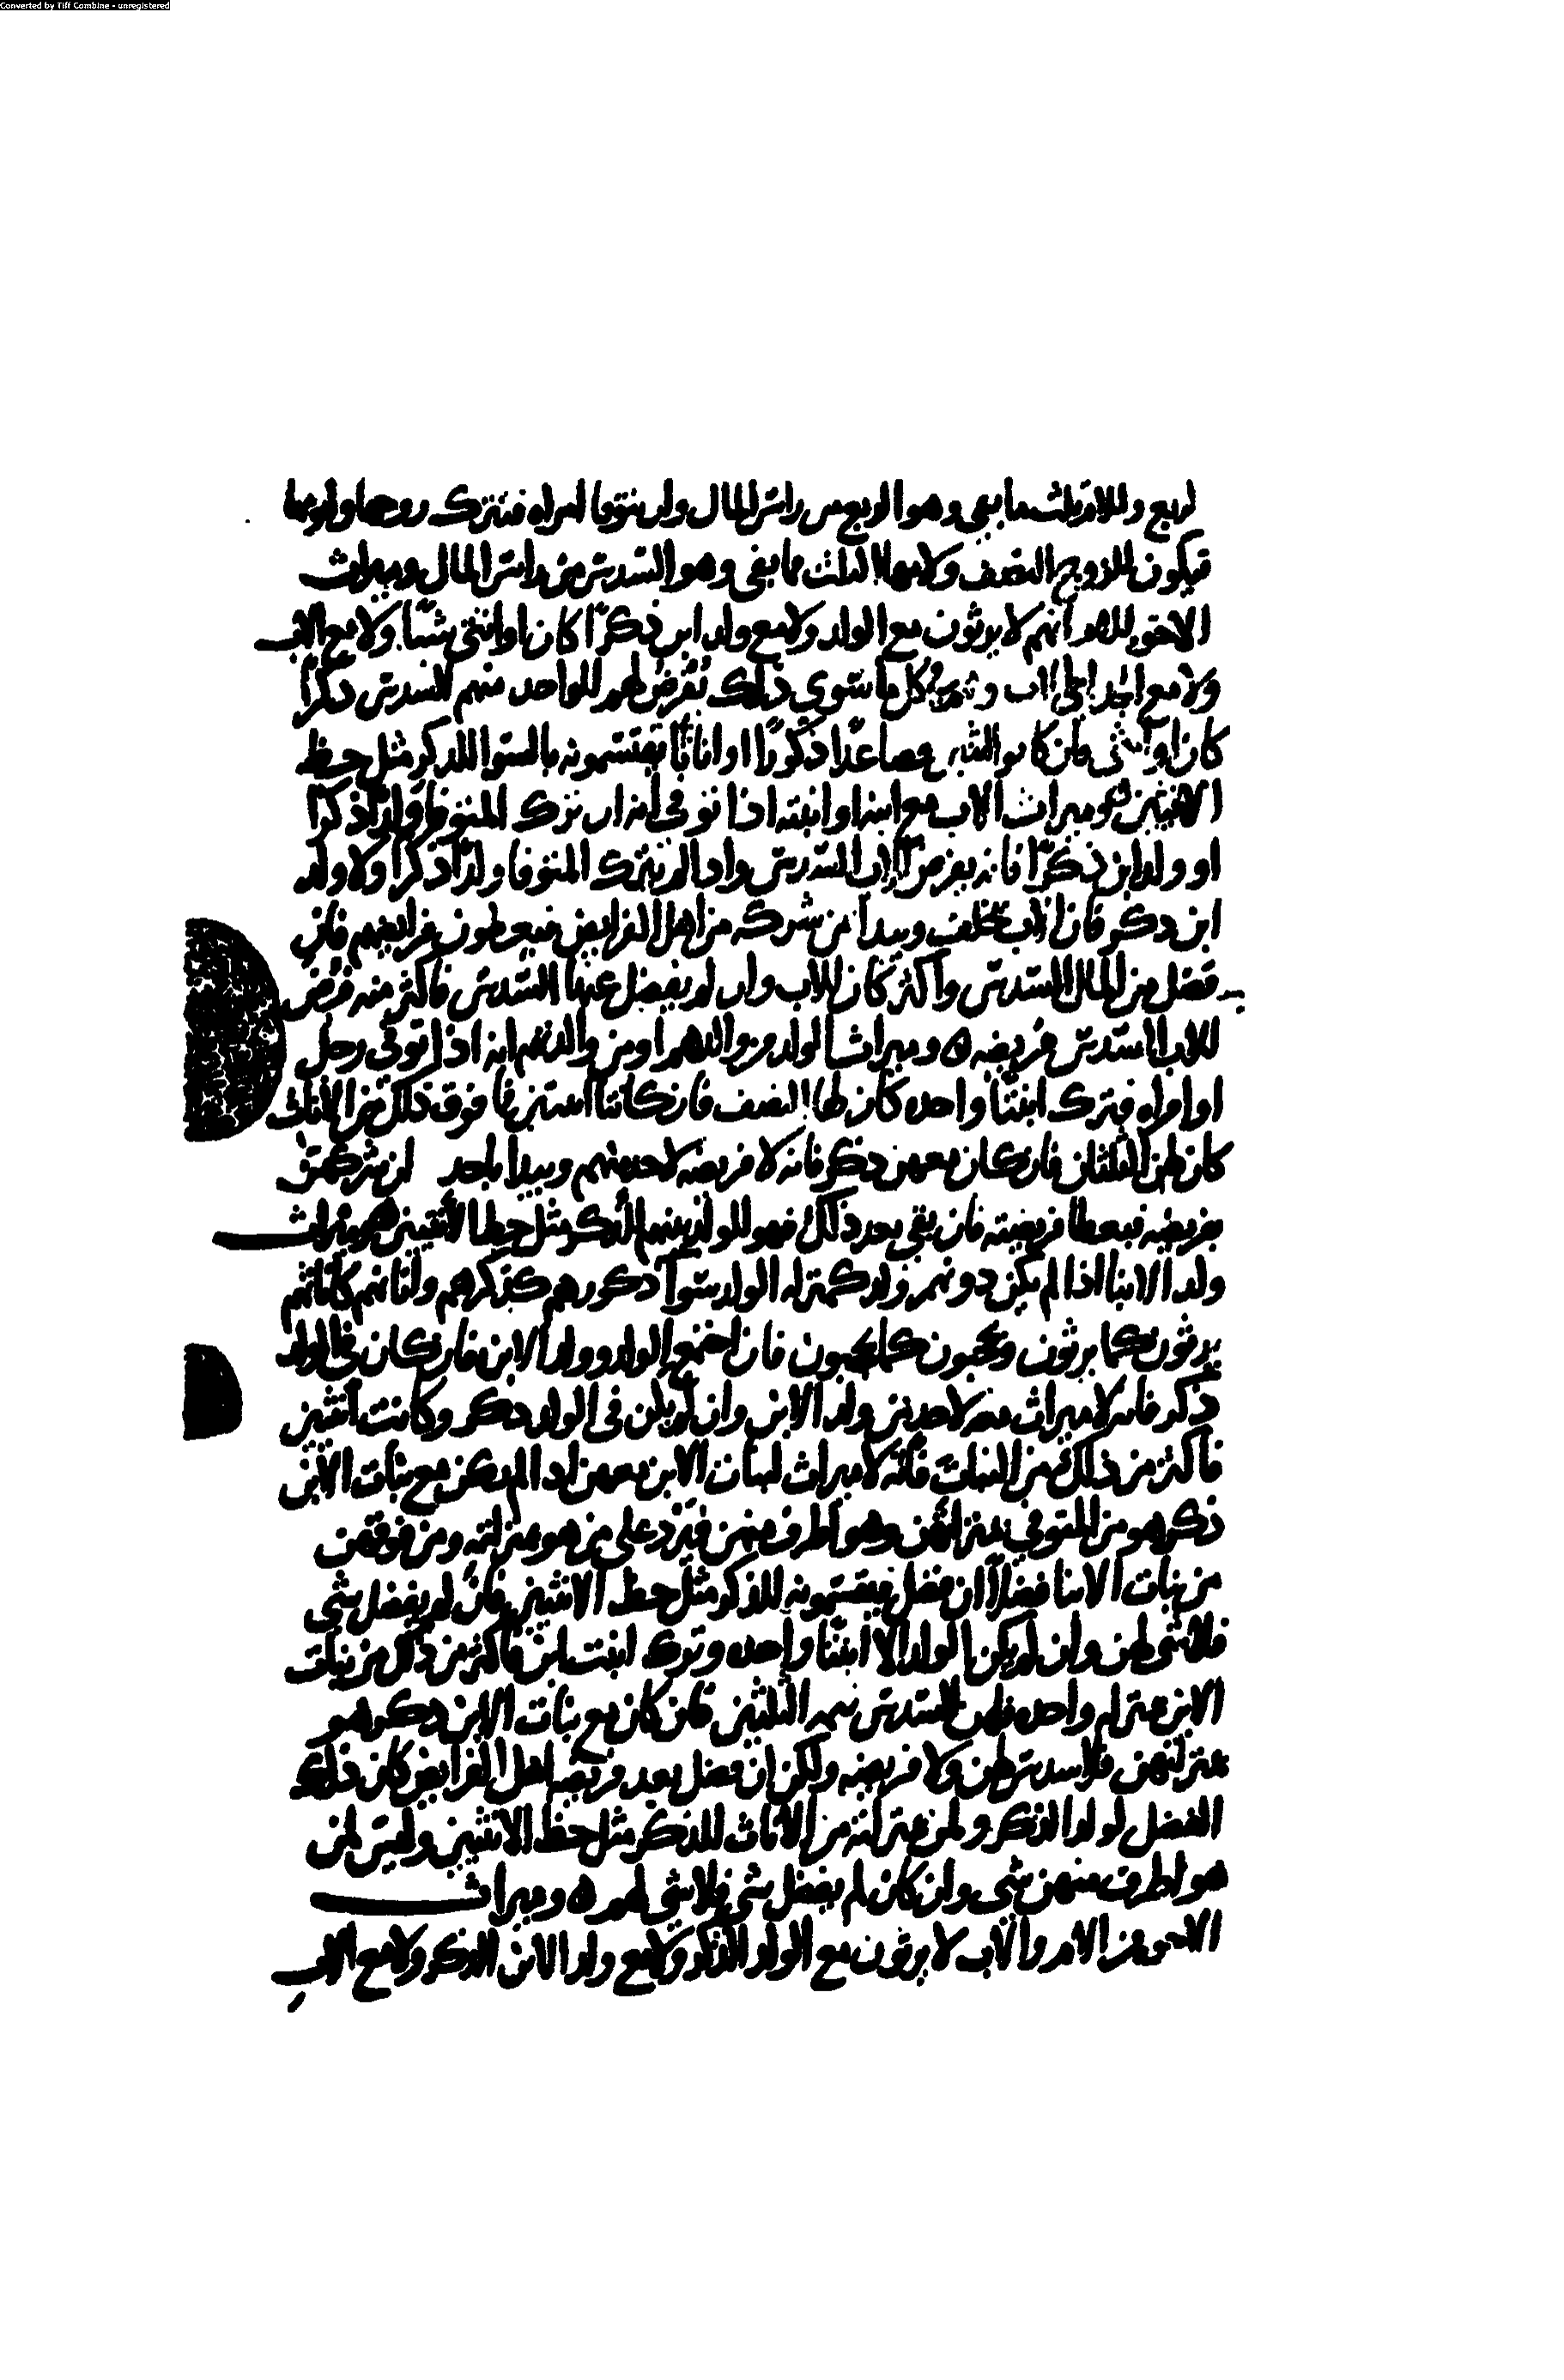 Converted by Tiff Combine - unregistered
الربع وللام ثلث ما بقي وهو الربع من راس المال وان تتوفا امراه فتترك زوجها وابويها
فيكون للزوج النصف ولامها الثلث مما بقي وهو السدس من راس المال وميراث
الاخوه للام انهم لا يرثون مع الولد ولا مع ولد ابن ذكرًا كان او انثى شيًا ولا مع الاب
ولا مع الجد ابي الاب وهم في كل ما سوى ذلك يُفرض لهم للواحد منهم السدس ذكرًا
كان او انثى فان كانوا اثنين فصاعدًا ذكورًا او اناثًا يقتسمونه بالسوا للذكر مثل حظ
الانثيين هو ميراث الاب مع ابنه او ابنته اذا توفي انه ان ترك المتوفا ولدًا ذكرًا
او ولد ابن ذكرًا فانه يفرض للاب السدس واذا لم يترك المتوفا ولدًا ذكرًا ولا ولد
ابن ذكر فان الاب يخلف ويبدا من شركه من اهل الفرايض فيعطون فرايضهم فان
فضل من المال السدس واكثر كان للاب وان لم يفضل عنها السدس فاكثر منه فرض
للاب السدس فريضه ه وميراث الولد من والدهم او من والدتهم انه اذا توفي رجل
او امراه فترك ابنتًا واحده كان لها النصف فان كانتا اثنتين فما فوق ذلك من الاناث
كان لهن الثلثان فان كان معهن ذكر فانه لا فريضه لاحد منهم ويبدا باحد ان شركهم
بفريضه فيعطا فريضته فان بقي بعد ذلك فهو للولد بينهم للذكر مثل حظ الانثيين هو ميراث
ولد الابنا اذا لم يكن دونهم ولد كمنزله الولد سواً ذكورهم كذكرهم واناثهم كاناثهم
يرثون كما يرثون ويحجبون كما يحجبون فان اجتمع الولد وولد الابن فان كان في الولد
ذكر فانه لا ميراث معه لاحد من ولد الابن وان لم يكن في الولد ذكر وكانت اثنتين
فاكثر من ذلك من البنات فانه لا ميراث لبنات الابن معهن اذا لم يكن مع بنات الابن
ذكر هو من المتوفي بمنزلتهن وهو اطرف منهن فيرد على من هو بمنزلته ومن فوقهن
من بنات الابنا فضلًا ان فضل فيقتسمونه للذكر مثل حظ الانثيين فان لم يفضل شي
فلا شي لهن وان لم يكن الولد الا ابنتًا واحده وترك ابنت ابن فاكثر من ذلك من بنات
الابن بمنزله واحده فلهن السدس تتمه الثلثين فان كان مع بنات الابن ذكر هو
بمنزلتهن فلا سدس لهن ولا فريضه ولكن ان فضل بعد فريضه اهل الفرايض كان ذلك
الفضل لولد الذكر ولمن بمنزلته من الاناث للذكر مثل حظ الانثيين وليس لمن
هو اطرف منهن شي وان كان لم يفضل شي فلا شي لهم ه وميراث
الاخوه من الام والاب لا يرثون مع الولد الذكر ولا مع ولد الابن الذكر ولا مع الاب